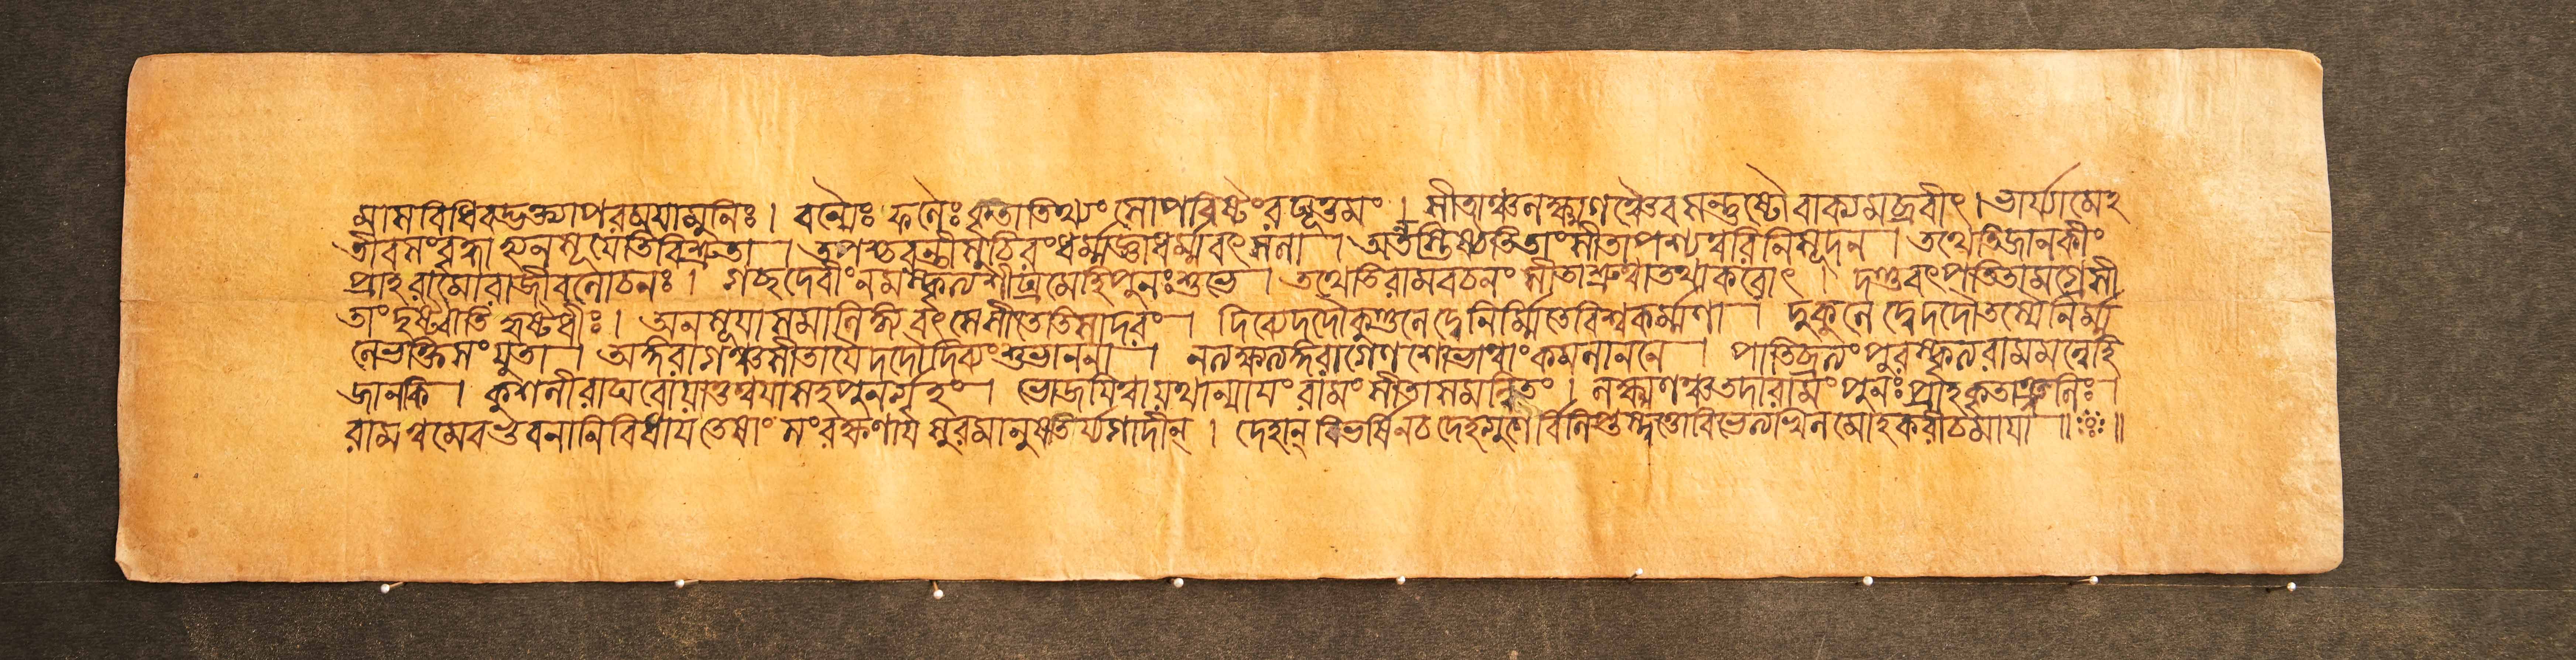 মাসবিধিবদ্ভক্ত্যাপরময়ামুনিঃ। বন্যৈঃ ফলৈঃকৃতাতিথ্যং সোপবিষ্টংরঘূত্তমং । সীতাঞ্চলক্ষ্মণঞ্চৈবসন্তুষ্টৌবাক্যমব্রবীৎ।ভার্য্যামেহ
তীবসংবৃদ্ধাহ্যনসূয়েতিবিশ্রুতা । তপশ্চরন্তীসুচিরংধর্ম্মজ্ঞাধর্ম্মবৎসলা । অন্তস্তিষ্ঠতিতাংসীতাপশ্যত্বরিনিসূদন । তথেতিজানকীং
প্রাহরামোরাজীবলোচনঃ। গচ্ছদেবীংনমস্কৃত্যশীঘ্রমেহিপুনঃশুভে । তথেতিরামবচনং সীতাশ্রুত্বাতথাকরোৎ । দণ্ডবৎপতিতামগ্রেসী
তাংদৃষ্ট্বাতিহৃষ্টধীঃ। অনসূয়াসমালিঙ্গ্যবৎসেসীতেতিসাদরং । দিব্যেদদৌকুণ্ডলেদ্বেনির্ম্মিতেবিশ্বকর্ম্মণা । দুকুলেদ্বেদদৌতস্যৈনির্ম্ম
লেভক্তিসংযুতা । অঙ্গরাগঞ্চসীতায়ৈদদৌদিব্যংশুভাননা । নত্যক্ষ্যত্যঙ্গরাগেণশোভাত্বাংকমলাননে । পাতিব্রত্যংপুরস্কৃত্যরামমন্বেহি
জানকি । কুশলীরাঘবোয়াতুত্বয়াসহপুনর্গৃহং । ভোজয়িত্বায়থান্যায়ংরামংসীতাসমন্বিতং । লক্ষ্মণঞ্চতদারামংপুনঃপ্রাহকৃতাঞ্জলিঃ।
রামত্বমেবভুবনানিবিধায়তেষাং সংরক্ষণায়সুরমানুষতির্য্যগাদীন্ । দেহান্ বিভর্ষিনচদেহগুণৈর্বিলিপ্তস্ত্বত্তোবিভেত্যখিলমোহকরীচমায়া ॥ ॥